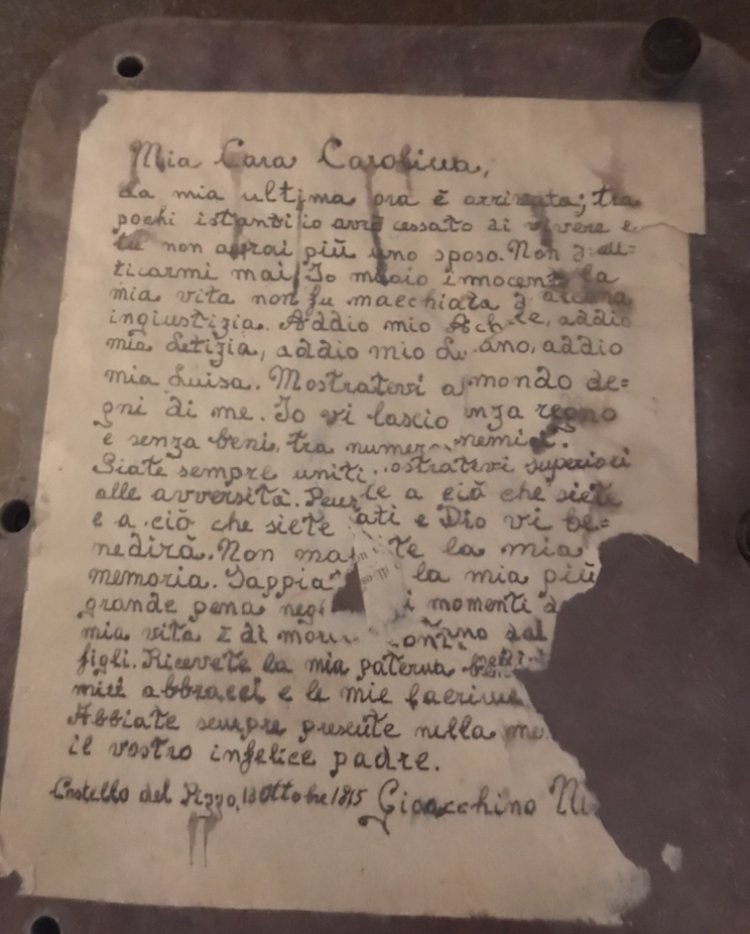 Mia Cara Carolina,
La mia ultima ora è arrivata; tra
pochi istanti io avrò cessato di vivere e
tu non avrai più uno sposo. Non
ticarmi mai. Io muoio innocente la
mia vita non fu macchiata
ingiustizia. Addio mio addio
mia Letizia, addio mio addio
mia Luisa. Mostratevi mondo de=
gni di me. Io vi lascio regno
e senza beni, tra
Siate sempre uniti superiori
alle avversità. a ciò che siete
e a ciò che siete e Dio vi be=
nedirà. Non la mia
memoria. la mia più
grande pena momenti
mia vita è di dai
figli. Ricevete la mia paterna
miei abbracci e le mie lacrime
Abbiate sempre presente nella
il vostro infelice padre.
Castello del Pizzo, 13 Ottobre 1815 Gioacchino